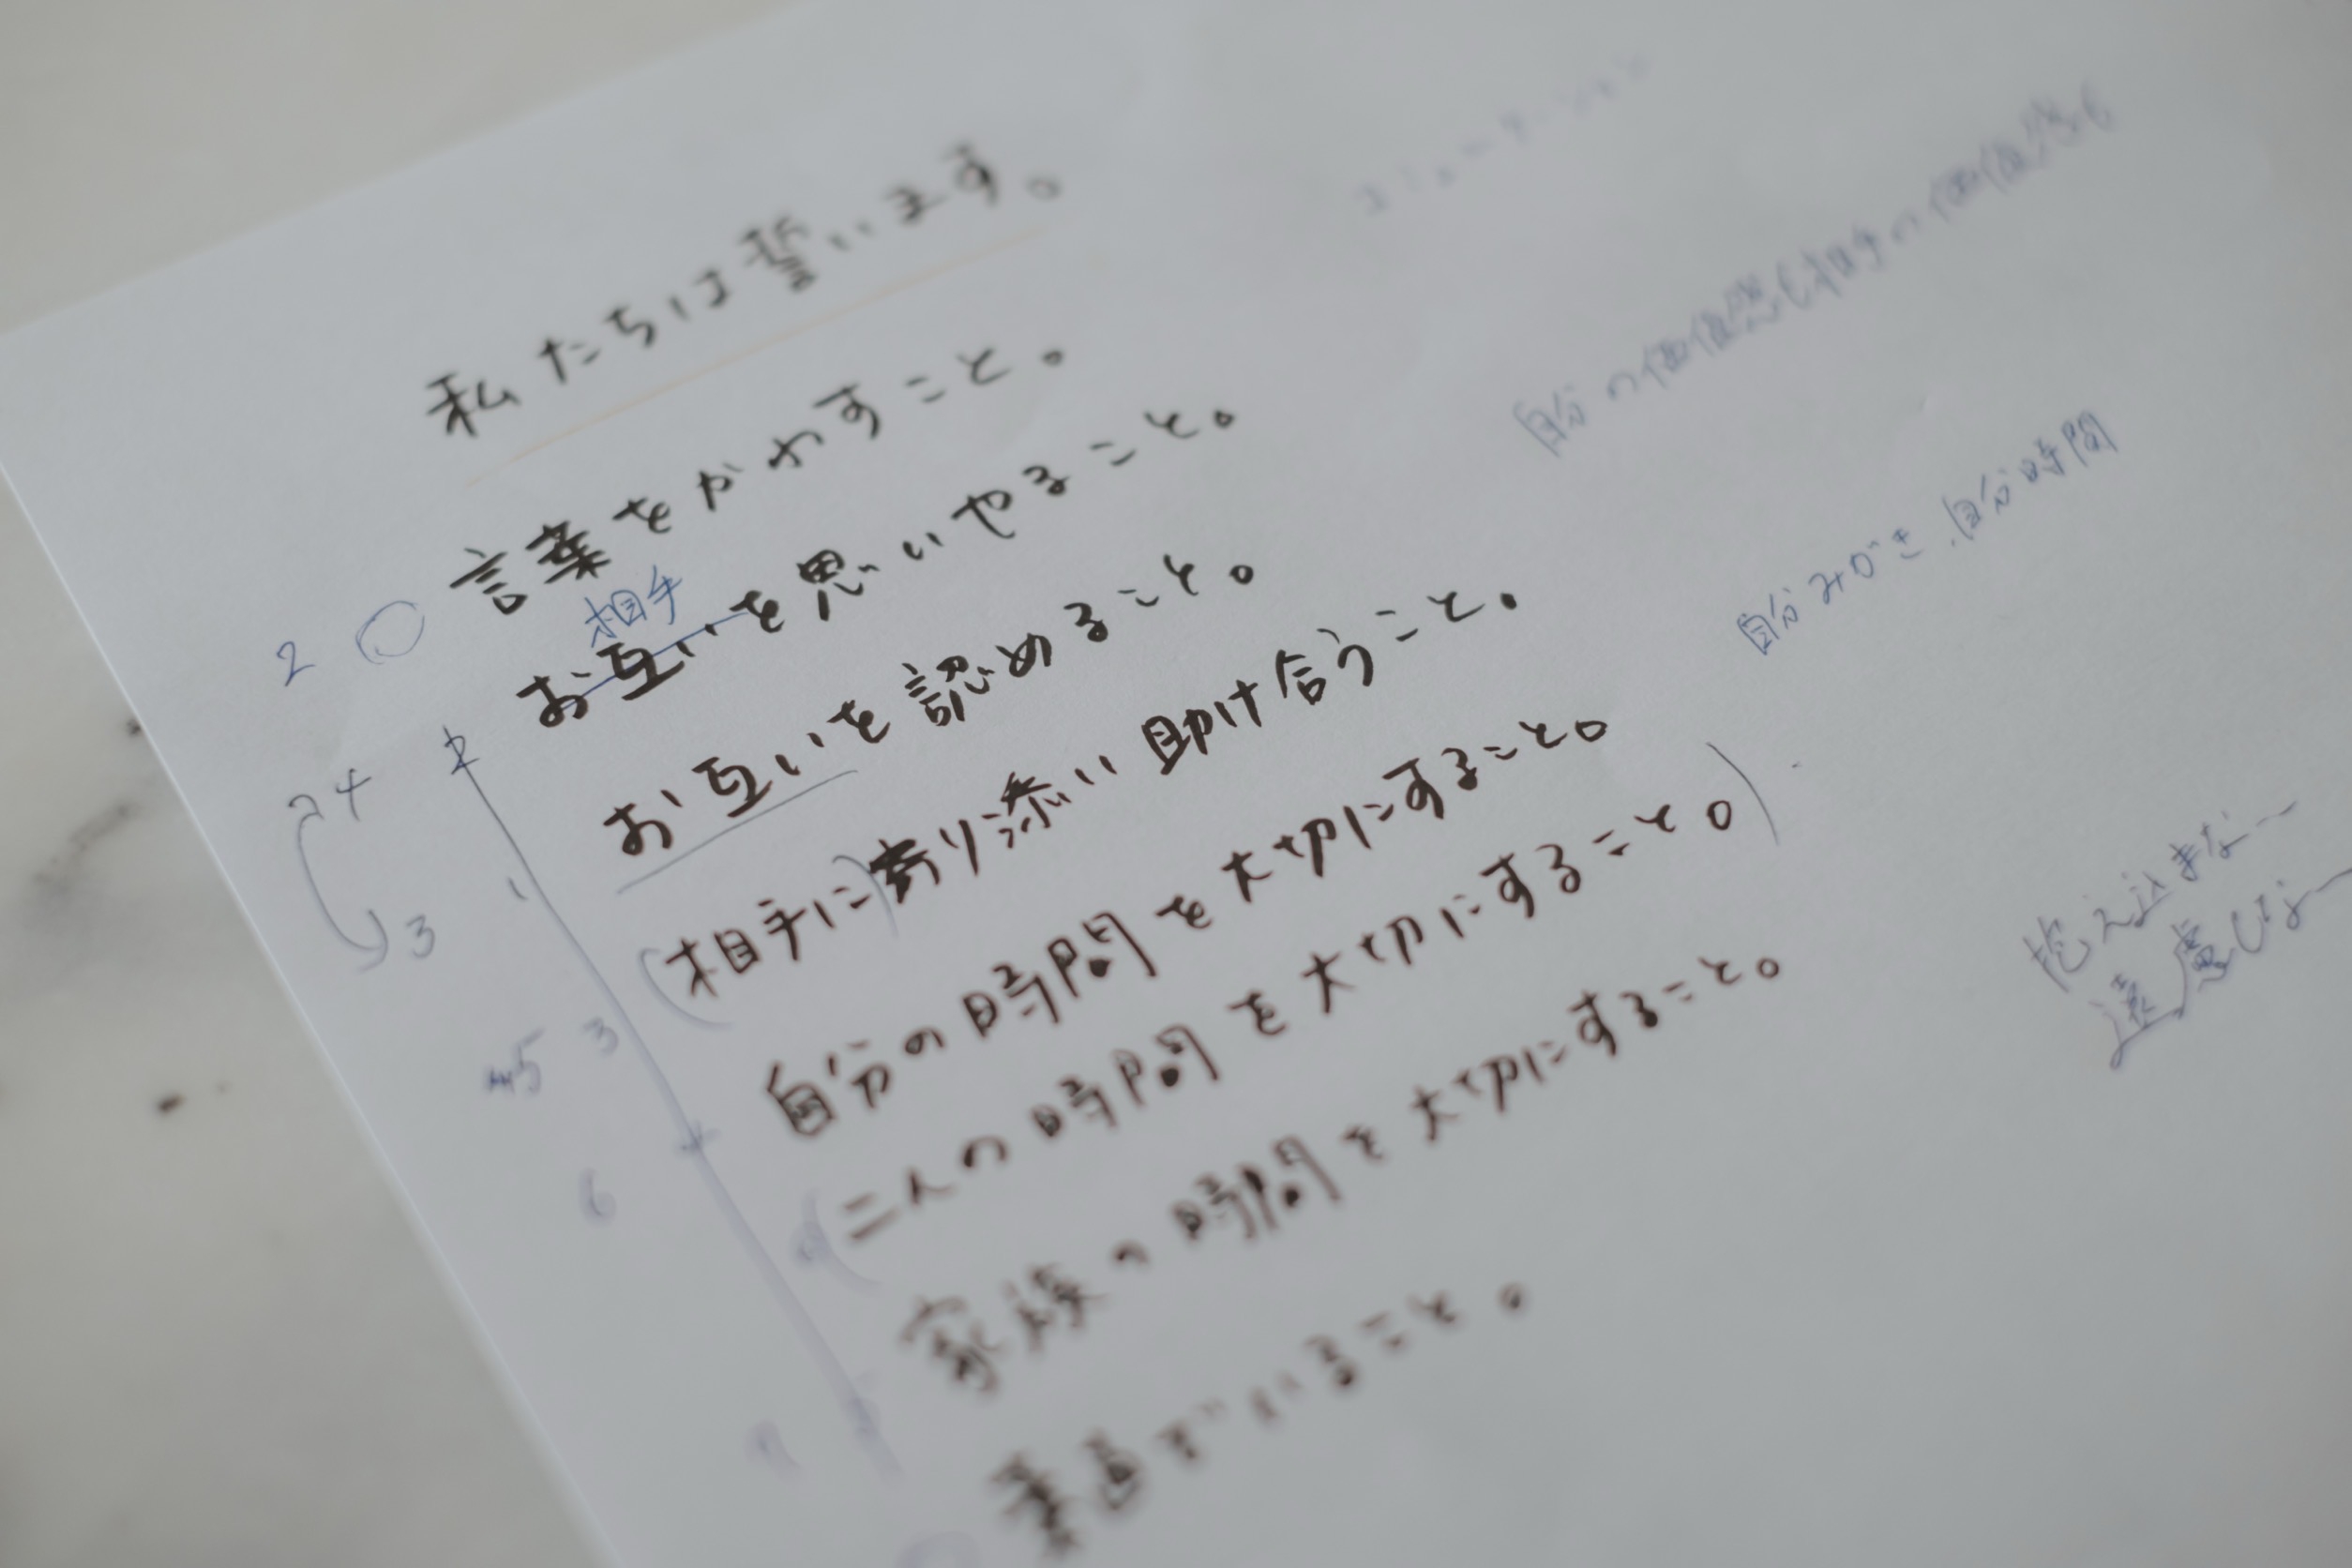 私たちは誓います。
コミュニケーション
言葉をかわすこと。
自分の価値感も相手の価値感も
2 〇
相手
お互いを思いやること。
2
お互いを認めること。
自分みがき、自分時間
24
1
(相手に)寄り添い助け合うこと。
3
3
自分の時間を大切にすること。
抱え込まな〜
遠慮しな〜
5
4
(二人の時間を大切にすること。)
6
家族の時間を大切にすること。
でいること。